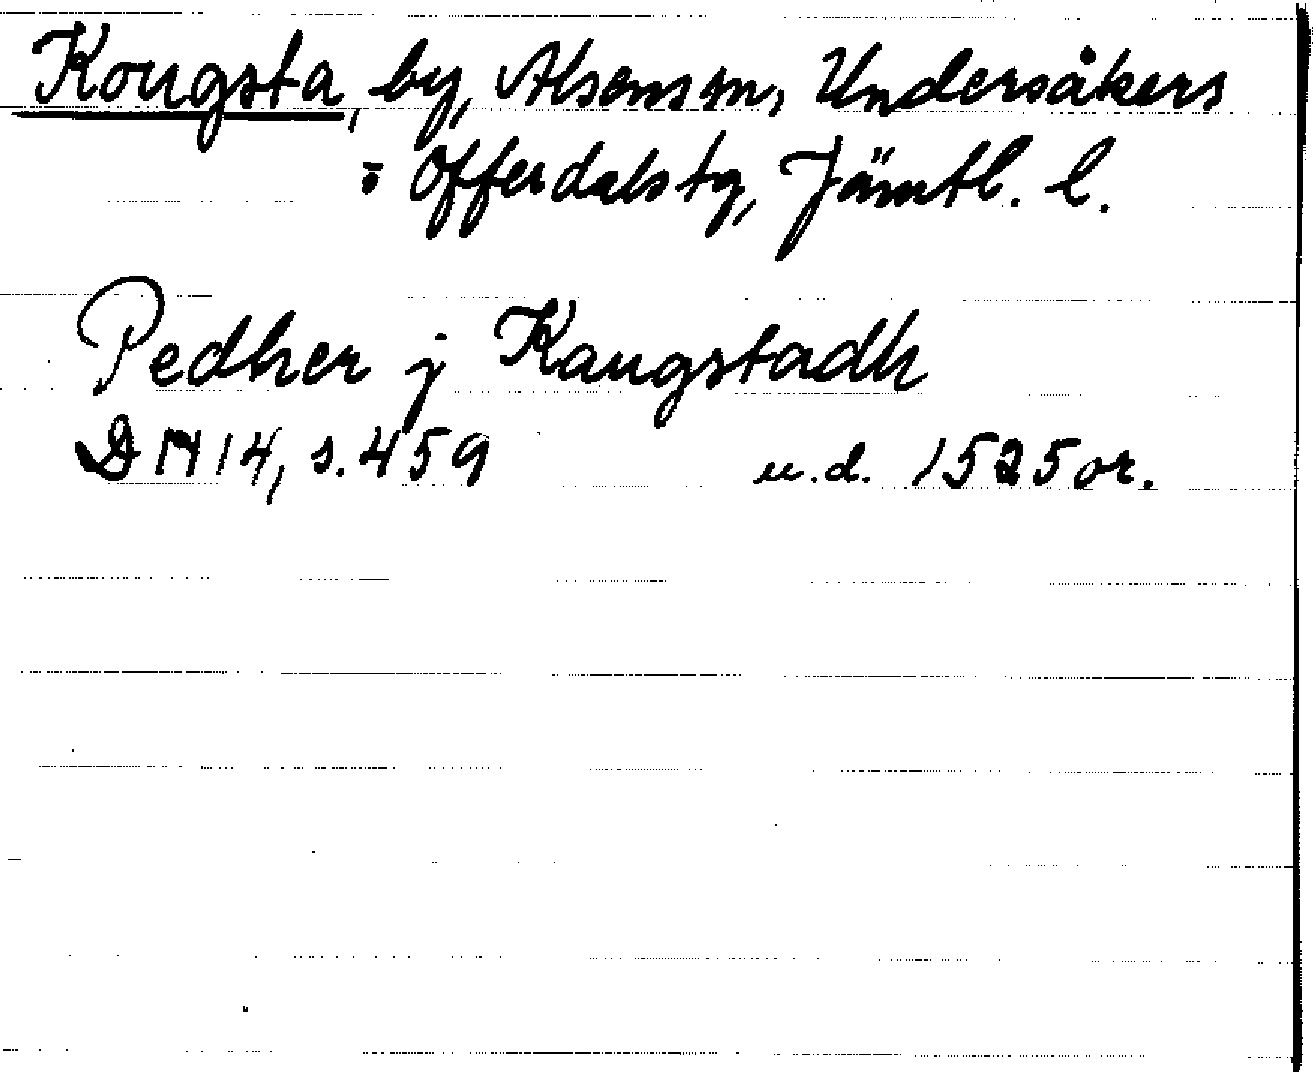 Kougsta, by, Alsens sn, Undersåkers
o. Offerdals tg, Jämtl. l.
Pedher j Kaugstadh
DN 14, s. 459 u.d. 1525 or.